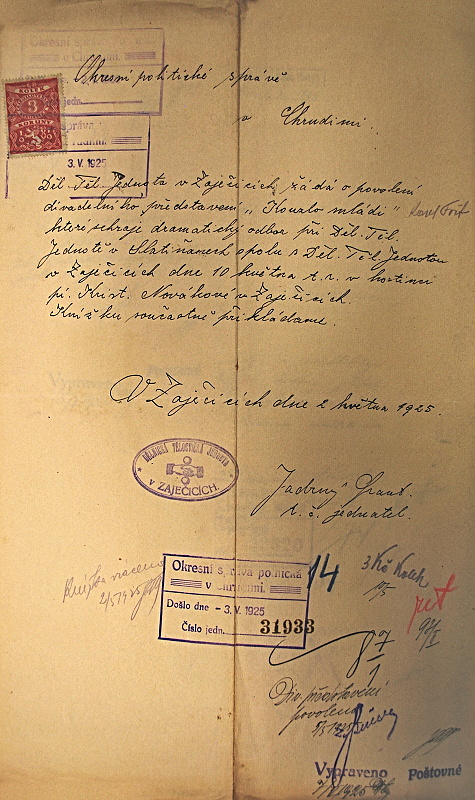 Okresní politické správě
v Chrudimi.
KOLEK
3
KORUNY
3.V.1925
Děl. Těl. Jednota v Zaječicích žádá o povolení
divadelního představení „Kouzlo mládí"
které sehraje dramatický odbor při Děl. Těl.
Jednotě v Slatiňanech spolu s Děl. Těl. Jednotou
v Zaječicích dne 10 května t. r. v hostinci
pí. Krist. Novákové v Zaječicích.
Knížku současně přikládáme.
V Zaječicích dne 2 května 1925.
DĚLNICKÁ TĚLOCVIČNÁ JEDNOTA
V ZAJEČICÍCH.
t. č. jednatel.
Okresní správa politická
v Chrudimi.
Došlo dne - 3.V.1925
Číslo jedn. 31933
14
3 Kč Kolek
Knížka vrácena
Div. představení
povoleno
Vypraveno
Poštovné